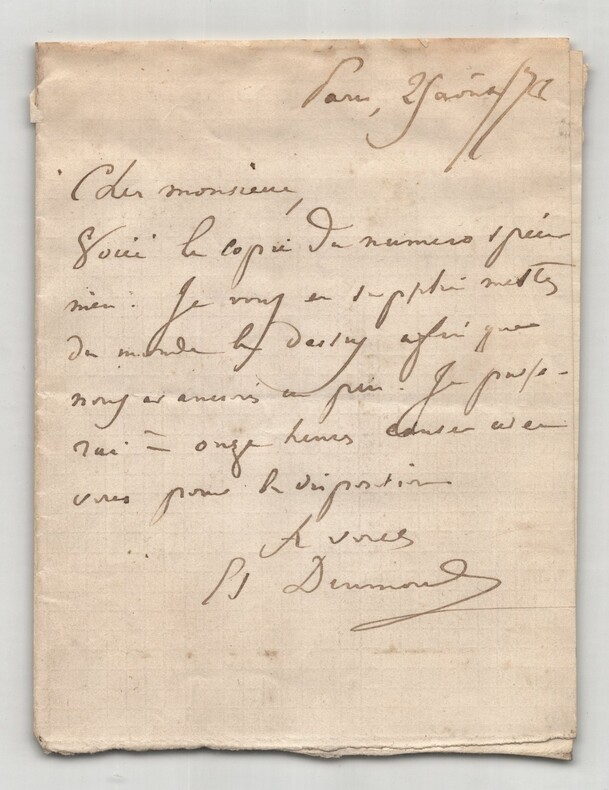 Paris, 25 août
Cher monsieur,
Voici la copie du numero spéci
men. Je vous en supplie mettez
du monde la dessus afin que
nous avancions un peu. Je passe-
rai à onze heures causer avec
vous pour la disposition
A vous